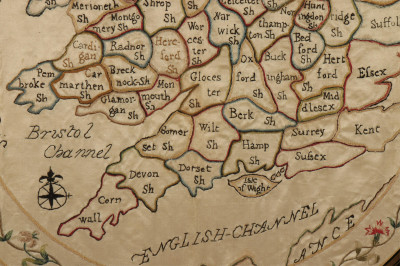 Merioneth
Sh
Montgo
mery Sh
Shrop
Sh
Leicester
Sh
Hun
tingdon
Sh
ridge
Sh
Suffol
Cardi
gan
Sh
Radnor
Sh
Here
ford
Sh
Wor
ces
ter
Sh
War
wick
Sh
thamp
ton
Sh
Bed
ford
Sh
Pem
broke
Sh
Car
marthen
Sh
Breck
nock-Sh
Gloces
ter
Sh
Ox
ford
Sh
Buck
ingham
Sh
Hert
ford
Sh
Essex
Glamor-
gan Sh
Mon
mouth
Sh
Mid
dlesex
Bristol
Channel
Somer
set Sh
Wilt
Sh
Berk
Sh
Surrey
Kent
Devon
Sh
Dorset
Sh
Hamp
Sh
Sussex
Isle
of Wight
Corn
wall
ENGLISH-CHANNEL
ANCE